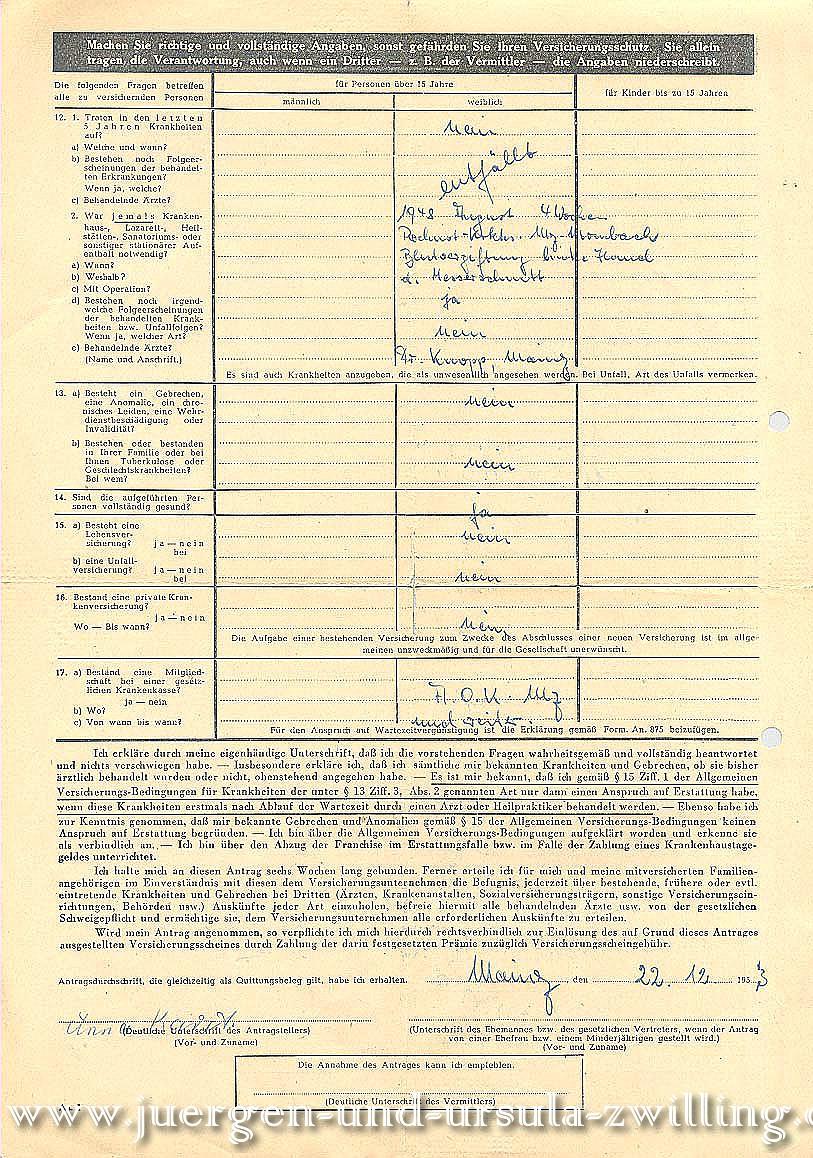 Machen Sie richtige und vollständige Angaben, sonst gefährden Sie Ihren Versicherungsschutz. Sie allein
tragen die Verantwortung, auch wenn ein Dritter — z. B. der Vermittler — die Angaben niederschreibt.
Die folgenden Fragen betreffen
alle zu versichernden Personen
für Personen über 15 Jahre
männlich
weiblich
für Kinder bis zu 15 Jahren
12. 1. Traten in den letzten
5 Jahren Krankheiten
auf?
nein
a) Welche und wann?
b) Bestehen noch Folgeer-
scheinungen der behandel-
ten Erkrankungen?
Wenn ja, welche?
entfällt
c) Behandelnde Ärzte?
2. War jemals Kranken-
haus-, Lazarett-, Heil-
stätten-, Sanatoriums- oder
sonstiger stationärer Auf-
enthalt notwendig?
1948 August 4 Wochen
Mz-Mombach
a) Wann?
Blutvergiftung linke Hand
b) Weshalb?
d. Messerschnitt
c) Mit Operation?
ja
d) Bestehen noch irgend-
welche Folgeerscheinungen
der behandelten Krank-
heiten bzw. Unfallfolgen?
Wenn ja, welcher Art?
nein
e) Behandelnde Ärzte?
(Name und Anschrift.)
Dr. Knopp, Mainz
Es sind auch Krankheiten anzugeben, die als unwesentlich angesehen werden. Bei Unfall, Art des Unfalls vermerken.
13. a) Besteht ein Gebrechen,
eine Anomalie, ein chro-
nisches Leiden, eine Wehr-
dienstbeschädigung oder
Invalidität?
nein
b) Bestehen oder bestanden
in Ihrer Familie oder bei
Ihnen Tuberkulose oder
Geschlechtskrankheiten?
Bei wem?
nein
14. Sind die aufgeführten Per-
sonen vollständig gesund?
ja
15. a) Besteht eine
Lebensver-
sicherung? ja — nein
bei
nein
b) eine Unfall-
versicherung? ja — nein
bei
nein
16. Bestand eine private Kran-
kenversicherung?
ja — nein
Wo — Bis wann?
nein
Die Aufgabe einer bestehenden Versicherung zum Zwecke des Abschlusses einer neuen Versicherung ist im allge-
meinen unzweckmäßig und für die Gesellschaft unerwünscht.
17. a) Bestand eine Mitglied-
schaft bei einer gesetz-
lichen Krankenkasse?
ja — nein
b) Wo?
A.O.K. Mz
c) Von wann bis wann?
und weiter.
Für den Anspruch auf Wartezeitvergünstigung ist die Erklärung gemäß Form. An. 875 beizufügen.
Ich erkläre durch meine eigenhändige Unterschrift, daß ich die vorstehenden Fragen wahrheitsgemäß und vollständig beantwortet
und nichts verschwiegen habe. — Insbesondere erkläre ich, daß ich sämtliche mir bekannten Krankheiten und Gebrechen, ob sie bisher
ärztlich behandelt wurden oder nicht, obenstehend angegeben habe. — Es ist mir bekannt, daß ich gemäß § 15 Ziff. 1 der Allgemeinen
Versicherungs-Bedingungen für Krankheiten der unter § 13 Ziff. 3, Abs. 2 genannten Art nur dann einen Anspruch auf Erstattung habe,
wenn diese Krankheiten erstmals nach Ablauf der Wartezeit durch einen Arzt oder Heilpraktiker behandelt werden. — Ebenso habe ich
zur Kenntnis genommen, daß mir bekannte Gebrechen und Anomalien gemäß § 15 der Allgemeinen Versicherungs-Bedingungen keinen
Anspruch auf Erstattung begründen. — Ich bin über die Allgemeinen Versicherungs-Bedingungen aufgeklärt worden und erkenne sie
als verbindlich an. — Ich bin über den Abzug der Franchise im Erstattungsfalle bzw. im Falle der Zahlung eines Krankenhaustage-
geldes unterrichtet.
Ich halte mich an diesen Antrag sechs Wochen lang gebunden. Ferner erteile ich für mich und meine mitversicherten Familien-
angehörigen im Einverständnis mit diesen dem Versicherungsunternehmen die Befugnis, jederzeit über bestehende, frühere oder evtl.
eintretende Krankheiten und Gebrechen bei Dritten (Ärzten, Krankenanstalten, Sozialversicherungsträgern, sonstige Versicherungsein-
richtungen, Behörden usw.) Auskünfte jeder Art einzuholen, befreie hiermit alle behandelnden Ärzte usw. von der gesetzlichen
Schweigepflicht und ermächtige sie, dem Versicherungsunternehmen alle erforderlichen Auskünfte zu erteilen.
Wird mein Antrag angenommen, so verpflichte ich mich hierdurch rechtsverbindlich zur Einlösung des auf Grund dieses Antrages
ausgestellten Versicherungsscheines durch Zahlung der darin festgesetzten Prämie zuzüglich Versicherungsscheingebühr.
Antragsdurchschrift, die gleichzeitig als Quittungsbeleg gilt, habe ich erhalten. Mainz, den 22. 12. 1953
Anna
(Deutliche Unterschrift des Antragstellers)
(Vor- und Zuname)
(Unterschrift des Ehemannes bzw. des gesetzlichen Vertreters, wenn der Antrag
von einer Ehefrau bzw. einem Minderjährigen gestellt wird.)
(Vor- und Zuname)
Die Annahme des Antrages kann ich empfehlen.
(Deutliche Unterschrift des Vermittlers)
www.juergen-und-ursula-zwilling.